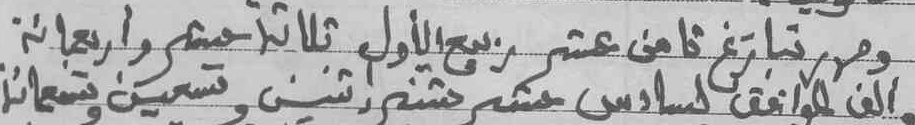 وحرر بتاريخ ثامن عشر ربيع الأول ثلاثة عشر وأربعمائة
وألف الموافق لسادس عشر شتنبر اثنين وتسعين وتسعمائة